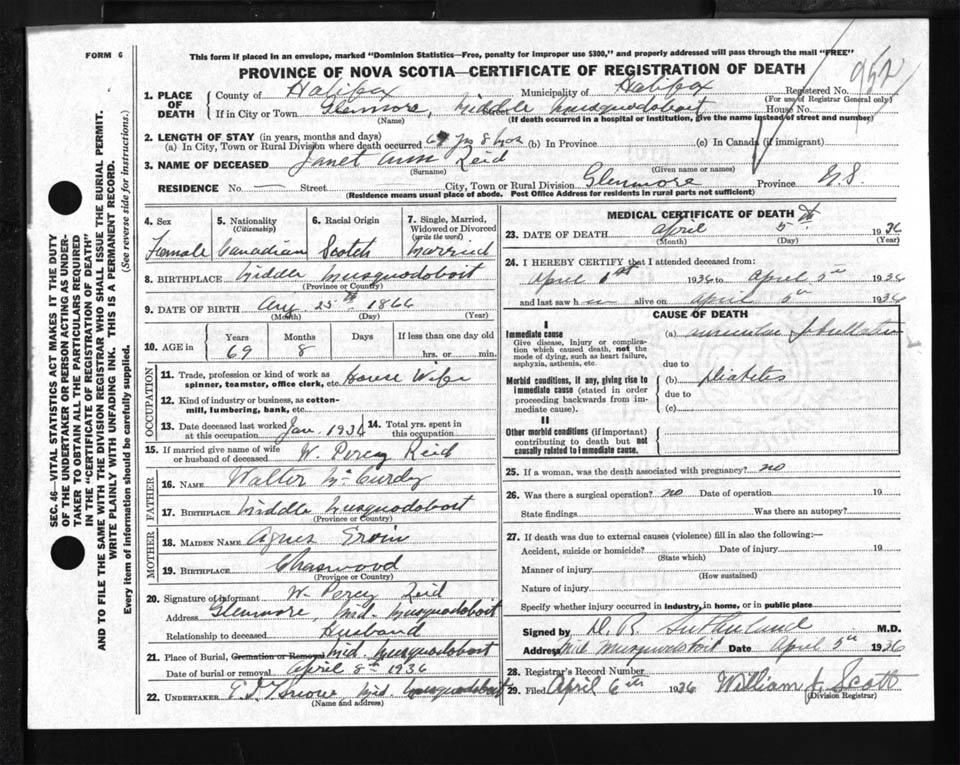 FORM 6
This form if placed in an envelope, marked "Dominion Statistics—Free, penalty for improper use $300," and properly addressed will pass through the mail "FREE"
PROVINCE OF NOVA SCOTIA—CERTIFICATE OF REGISTRATION OF DEATH
952
SEC. 46—VITAL STATISTICS ACT MAKES IT THE DUTY
OF THE UNDERTAKER OR PERSON ACTING AS UNDER-
TAKER TO OBTAIN ALL THE PARTICULARS REQUIRED
IN THE "CERTIFICATE OF REGISTRATION OF DEATH"
AND TO FILE THE SAME WITH THE DIVISION REGISTRAR WHO SHALL ISSUE THE BURIAL PERMIT.
WRITE PLAINLY WITH UNFADING INK. THIS IS A PERMANENT RECORD.
Every item of information should be carefully supplied. (See reverse side for instructions.)
1. PLACE OF DEATH County of Halifax Municipality of Halifax Registered No.
(For use of Registrar General only)
If in City or Town Glenmore, Middle Musquodoboit Street House No.
(Name) (If death occurred in a hospital or institution, give the name instead of street and number)
2. LENGTH OF STAY (in years, months and days)
(a) In City, Town or Rural Division where death occurred 69 yrs 8 mos (b) In Province (c) In Canada (if immigrant)
3. NAME OF DECEASED Janet Ann Reid
(Surname) (Given name or names)
RESIDENCE No. — Street City, Town or Rural Division Glenmore Province N.S.
(Residence means usual place of abode. Post Office Address for residents in rural parts not sufficient)
4. Sex
Female
5. Nationality
(Citizenship)
Canadian
6. Racial Origin
Scotch
7. Single, Married,
Widowed or Divorced
(write the word)
Married
8. BIRTHPLACE Middle Musquodoboit
(Province or Country)
9. DATE OF BIRTH Aug 25th 1866
(Month) (Day) (Year)
10. AGE in Years Months Days If less than one day
69 8 hrs. or min.
OCCUPATION
11. Trade, profession or kind of work as
spinner, teamster, office clerk, etc. House Wife
12. Kind of industry or business, as cotton-
mill, lumbering, bank, etc.
13. Date deceased last worked
at this occupation Jan. 1936
14. Total yrs. spent in
this occupation
15. If married give name of wife
or husband of deceased W. Percy Reid
FATHER
16. NAME Walter McCurdy
17. BIRTHPLACE Middle Musquodoboit
(Province or Country)
MOTHER
18. MAIDEN NAME Agnes Ervin
19. BIRTHPLACE Chaswood
(Province or Country)
20. Signature of Informant W. Percy Reid
Address Glenmore, Mid. Musquodoboit
Relationship to deceased Husband
21. Place of Burial, Cremation or Removal Mid. Musquodoboit
Date of burial or removal April 8th 1936
22. UNDERTAKER Mid Musquodoboit
(Name and address)
MEDICAL CERTIFICATE OF DEATH
23. DATE OF DEATH April 5th 1936
(Month) (Day) (Year)
24. I HEREBY CERTIFY that I attended deceased from:
April 1st 1936 to April 5th 1936
and last saw h alive on April 5th 1936
CAUSE OF DEATH
I
Immediate cause
Give disease, injury or complica-
tion which caused death, not the
mode of dying, such as heart failure,
asphyxia, asthenia, etc.
(a) auricular fibrillation
due to
Morbid conditions, if any, giving rise to
immediate cause (stated in order
proceeding backwards from im-
mediate cause).
(b) Diabetes
due to
(c)
II
Other morbid conditions (if important)
contributing to death but not
causally related to immediate cause.
25. If a woman, was the death associated with pregnancy? no
26. Was there a surgical operation? no Date of operation 19
State findings Was there an autopsy?
27. If death was due to external causes (violence) fill in also the following:—
Accident, suicide or homicide? Date of injury 19
(State which)
Manner of injury
(How sustained)
Nature of injury
Specify whether injury occurred in industry, in home, or in public place
Signed by D. R. Sutherland M.D.
Address Mid Musquodoboit Date April 5th 1936
28. Registrar's Record Number
29. Filed April 6th 1936 William J. Scott
(Division Registrar)